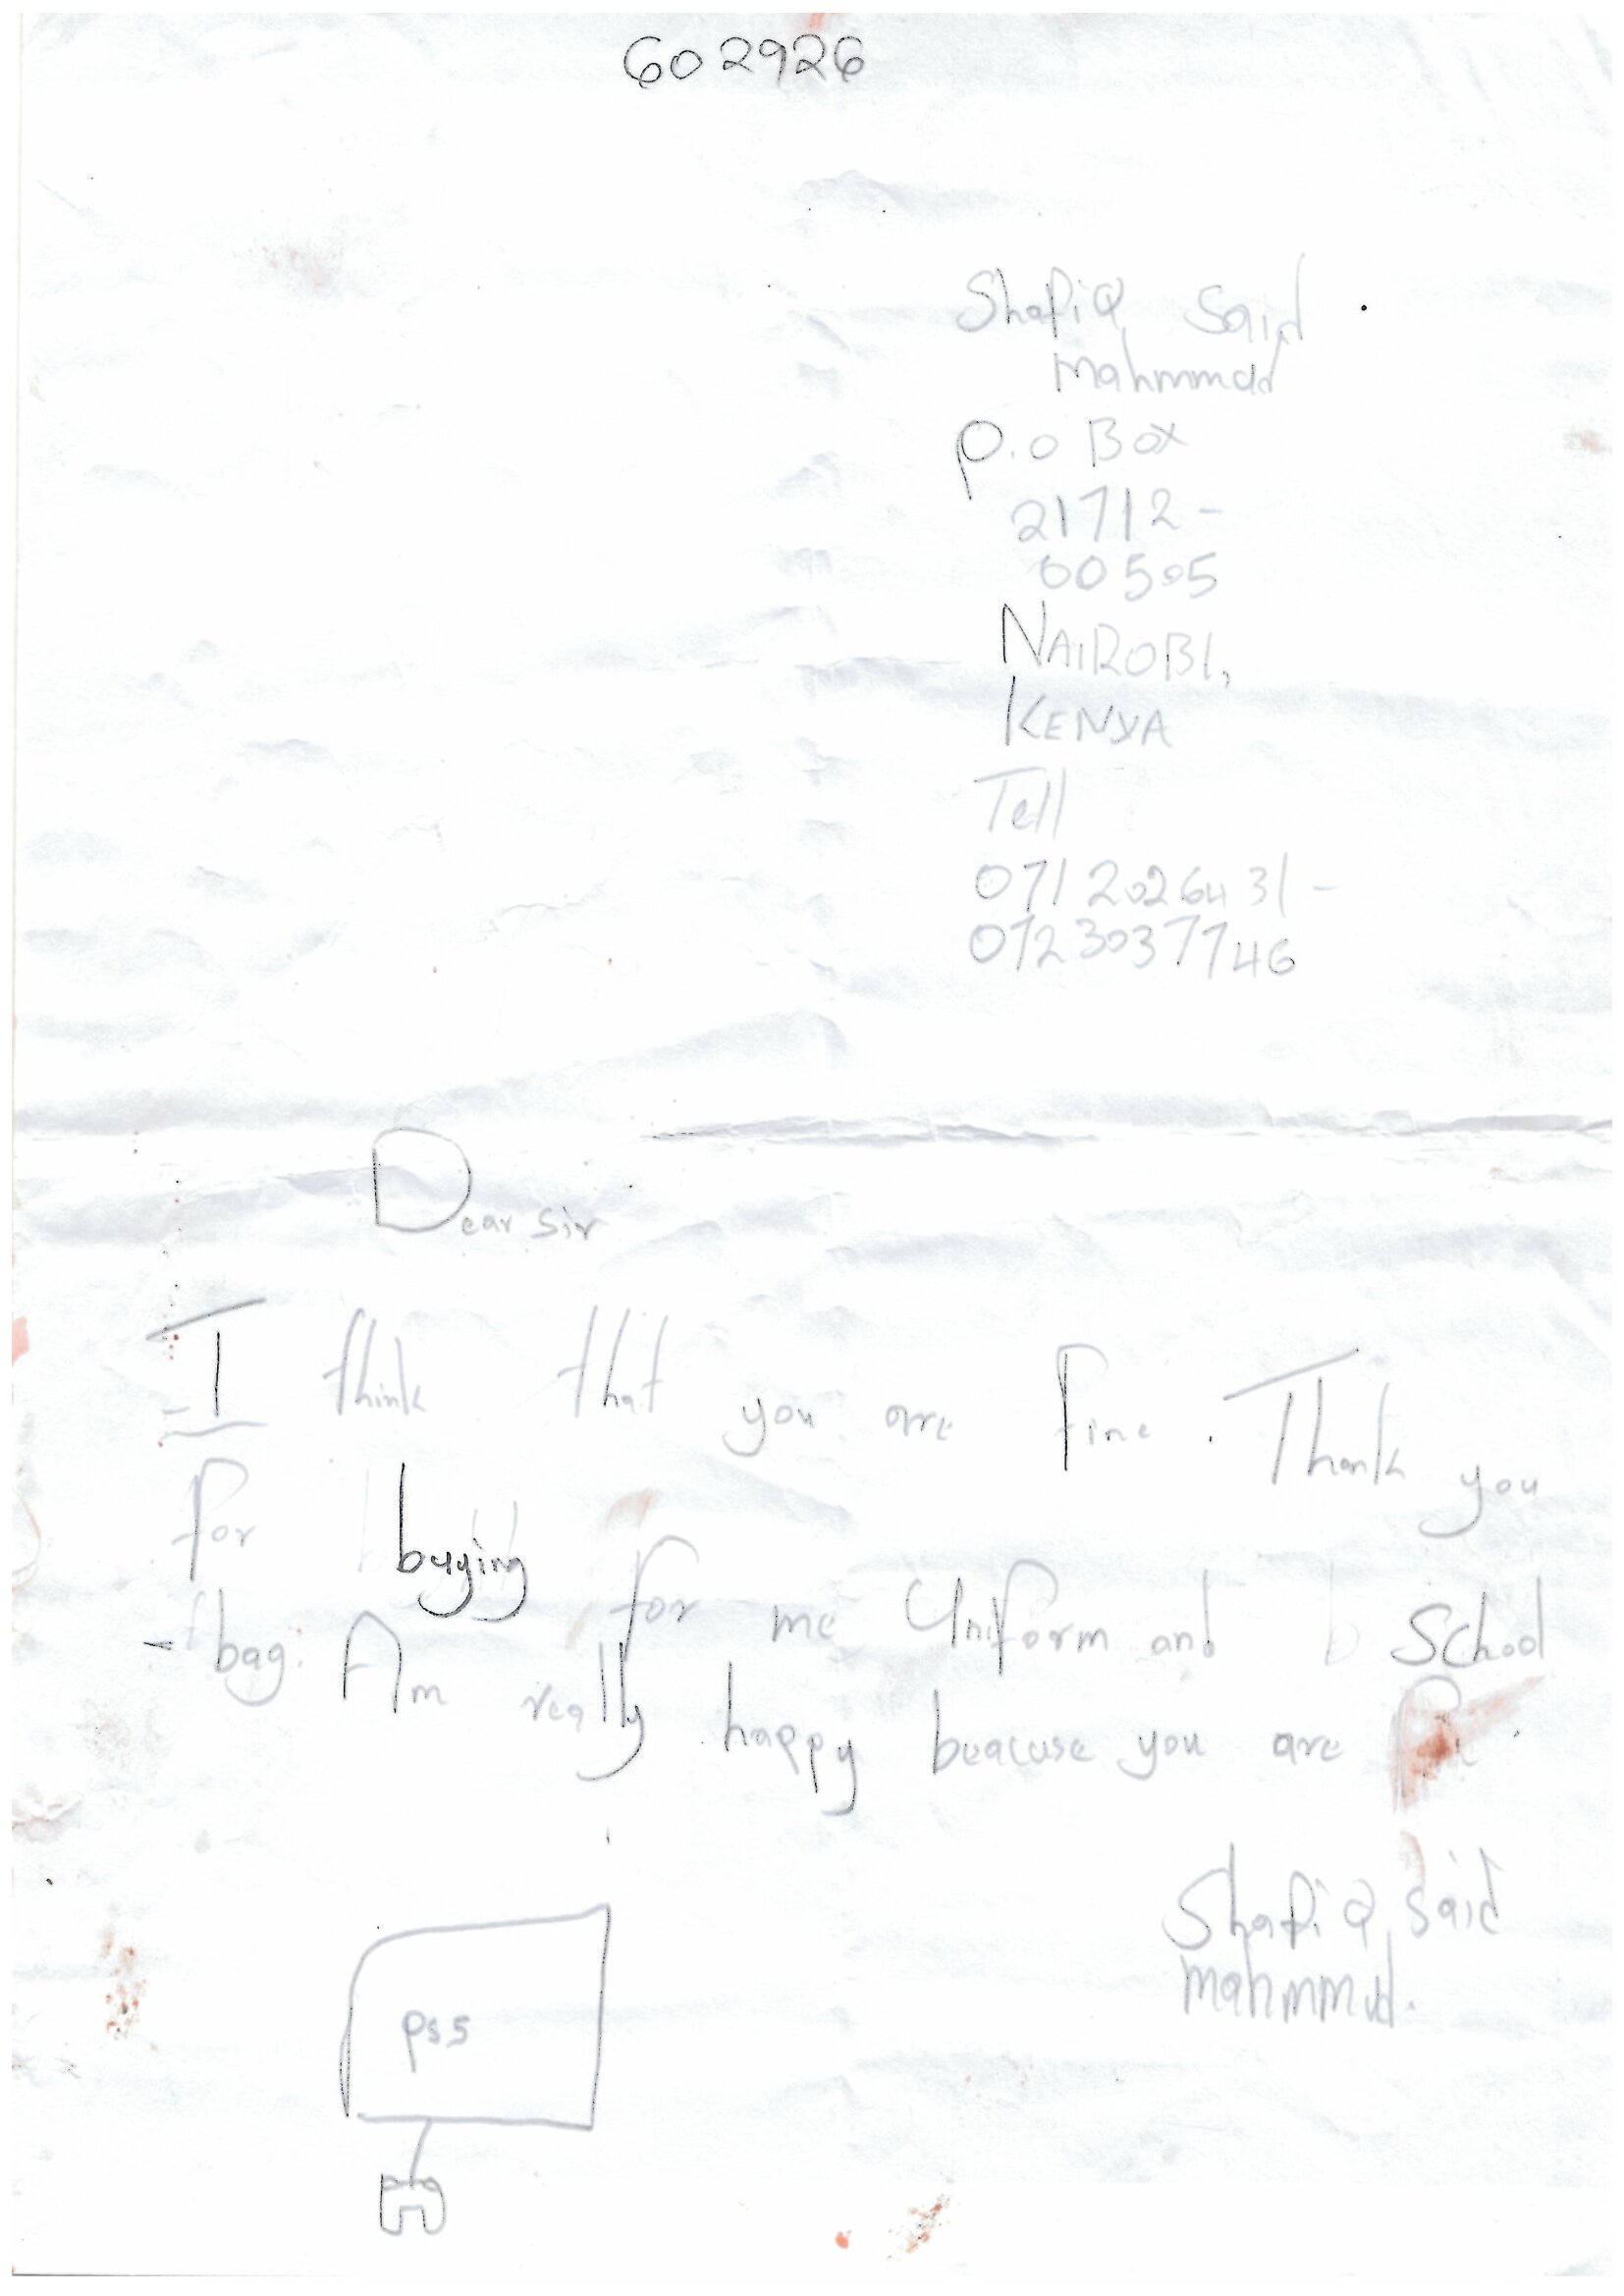 602926
Shafiq Said
Mahmmud
P.o Box
21712-
00505
NAIROBI,
KENYA
Tell
0712026431-
0723037746
Dear Sir
I think that you are fine. Thank you
for buying for me Uniform and School
bag. Am really happy beacuse you are
Shafiq Said
Mahmmud.
Ps5